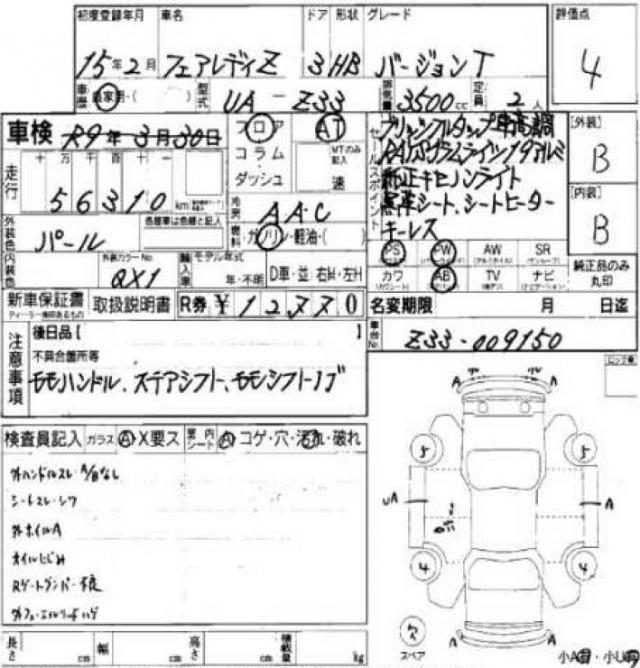 初度登録年月 車名 ドア 形状 グレード 評価点
15年2月 フェアレディZ 3 HB バージョンT 4
車歴 自家用・( ) 型式 UA-Z33 排気量 3500cc 定員 2人
車検 R9年3月30日 フロア AT [外装]
コラム・ダッシュ MTのみ記入 速 セールスポイント B
走行 十 万 千 百 十 一
56310 km 純正キセノンライト [内装]
外装色 パール 色替車は色替と記入 冷房 AAC 黒革シート、シートヒーター B
燃料 ガソリン・軽油・( ) キーレス
内装色 外装カラーNo. QX1 輸入車 モデル年式 年・不明 D車・並:右H・左H
PS PW AW SR 純正品のみ丸印
カワ AB TV ナビ
新車保証書 取扱説明書 R券 ¥ 0 名変期限 月 日迄
注意事項 後日品[ ] 車台No. Z33-009150
不具合箇所等
モモハンドル、ステアシフト、モモシフトノブ
検査員記入 ガラス A・X要ス 室内シート A・コゲ・穴・汚れ・破れ
シートスレ・シワ
外ホイルA
オイルにじみ
A A
5 5
UA A
4 4
スペア A A
長さ cm 幅 cm 高さ cm 積載量 kg